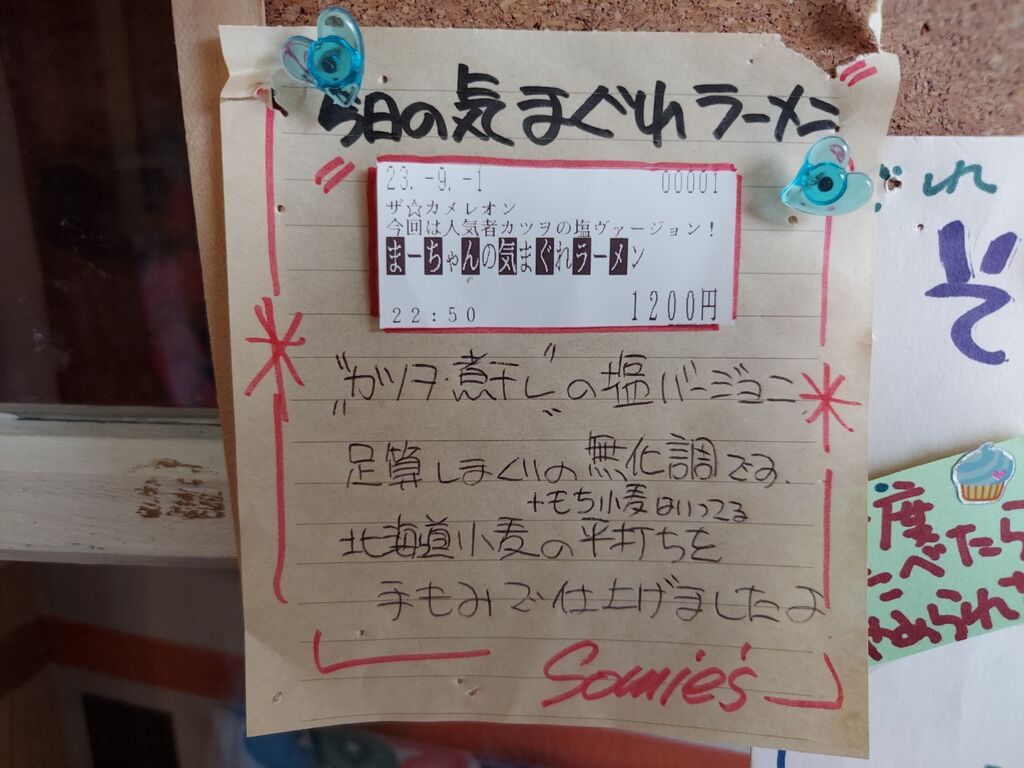 今日の気まぐれラーメン
23.-9.-1 00001
ザ☆カメレオン
今回は人気者カツヲの塩ヴァージョン！
まーちゃんの気まぐれラーメン
22:50 1200円
"カツヲ・煮干し"の塩バージョン
足算しまくりの無化調です、
+もち小麦はいってる
北海道小麦の平打ちを
手もみで仕上げましたよ
Somie's
ぐれ
そ
度
べたら
やめられ